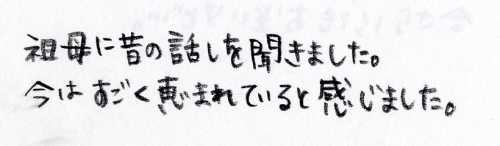 祖母に昔の話しを聞きました。
今はすごく恵まれていると感じました。